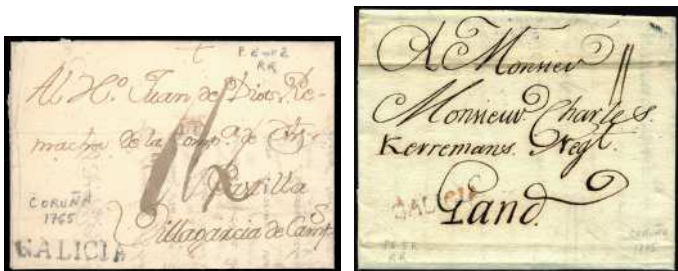 P.E nº2
RR
Al H.º Juan de Dios Re-
macha de la Comp.ª de
Castilla
Villagarcia de Camp.s
CORUÑA
1765
GALICIA
A Monsieur
Monsieur Charles
Kerremans Negt.
Gand.
GALICIA
RR
CORUÑA